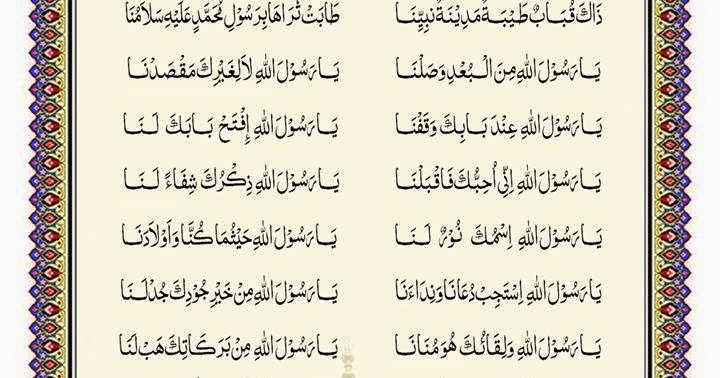 ذَاكَ قُبَابٌ طَيْبَةٌ مَدِيْنَةٌ نَبِيِّنَا طَابَتْ ثَرَاهَا بِرَسُوْلِ مُحَمَّدٍ عَلَيْهِ سَلَامُنَا
يَا رَسُوْلَ اللهِ مِنَ الْبُعْدِ وَصَلْنَا يَا رَسُوْلَ اللهِ لَا لِغَيْرِكَ مَقْصَدْنَا
يَا رَسُوْلَ اللهِ عِنْدَ بَابِكَ وَقَفْنَا يَا رَسُوْلَ اللهِ إِفْتَحْ بَابَكَ لَنَا
يَا رَسُوْلَ اللهِ إِنِّي أُحِبُّكَ فَاقْبَلْنَا يَا رَسُوْلَ اللهِ ذِكْرُكَ شِفَاءً لَنَا
يَا رَسُوْلَ اللهِ اِسْمُكَ نُوْرٌ لَنَا يَا رَسُوْلَ اللهِ حَيْثُمَا كُنَّا وَاَوْلَادَنَا
يَا رَسُوْلَ اللهِ اِسْتَجِبْ دُعَانَا وَنِدَاءَنَا يَا رَسُوْلَ اللهِ مِنْ خَيْرِ جُوْدِكَ جُدْ لَنَا
يَا رَسُوْلَ اللهِ وَلِقَائُكَ هُوَ مُنَانَا يَا رَسُوْلَ اللهِ مِنْ بَرَكَاتِكَ هَبْ لَنَا